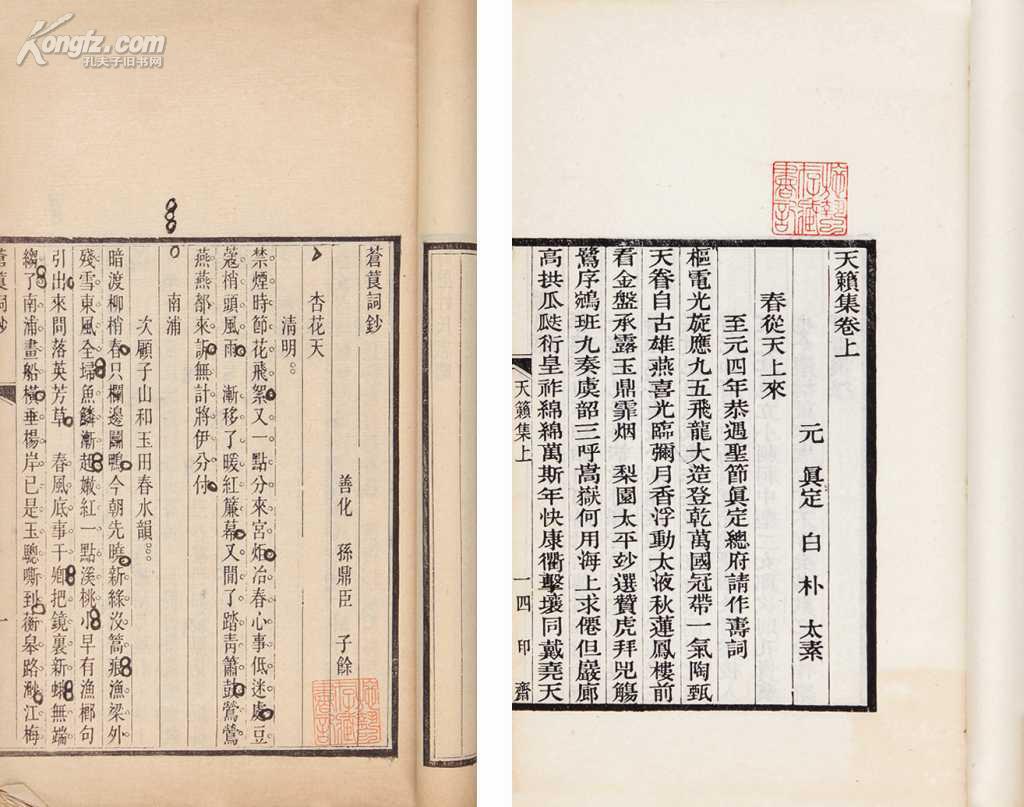 Kongfz.com
孔夫子旧书网
蒼筤詞鈔
善化　孫鼎臣　子餘
杏花天
清明
禁煙時節花飛絮又一點分來宮炬冶春心事低迷處豆
蔻梢頭風雨　漸移了暖紅簾幕又閒了踏靑簫鼓鶯鶯
燕燕都來訴無計將伊分付
南浦
次顧子山和玉田春水韻
暗渡柳梢春只欄邊鬭鴨今朝先曉新綠沒篙痕漁梁外
殘雪東風全掃魚鱗漸起嫩紅一點溪桃小早有漁榔句
引出來問落英芳草　春風底事干卿把鏡裏新蛾無端
縐了南浦畫船橫垂楊岸已是玉驄嘶到衡皋路渺江梅
蒼筤詞鈔
一
天籟集卷上
元　眞定　白　朴　太素
春從天上來
至元四年恭遇聖節眞定總府請作壽詞
樞電光旋應九五飛龍大造登乾萬國冠帶一氣陶甄
天眷自古雄燕喜光臨彌月香浮動太液秋蓮鳳樓前
看金盤承露玉鼎霏烟　梨園太平妙選贊虎拜兕觴
鷺序鵷班九奏虞韶三呼嵩嶽何用海上求僊但巖廊
高拱瓜瓞衍皇祚綿綿萬斯年快康衢擊壤同戴堯天
天籟集上
一
四印齋